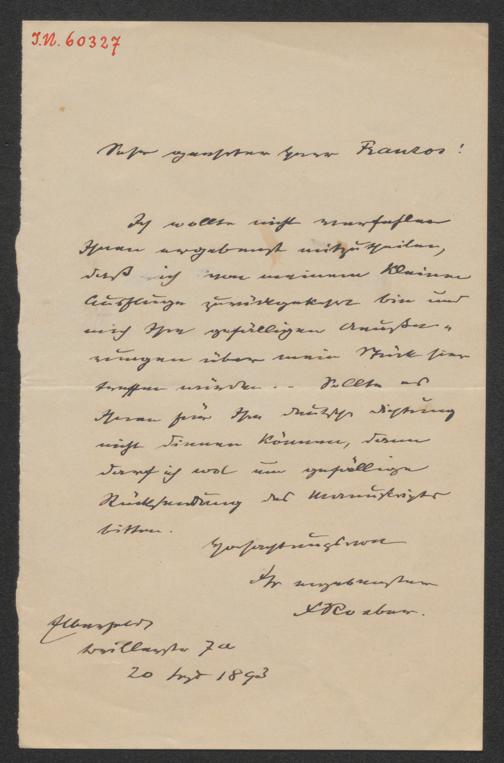 I.N. 60327
Sehr geehrter Herr Franzos!
Ich wollte nicht verfehlen
Ihnen ergebenst mitzutheilen,
daß ich von meinem kleinen
Ausfluge zurückgekehrt bin und
mich Ihre gefälligen Aeuße-
rungen über mein Stück hier
treffen würden. – Sollte es
Ihnen für Ihre deutsche Dichtung
nicht dienen können, dann
darf ich wol um gefällige
Rücksendung des Manuskripts
bitten.
Hochachtungsvoll
Ihr ergebenster
FRoeber.
Elberfeld
str 7a
20 Sept 1893